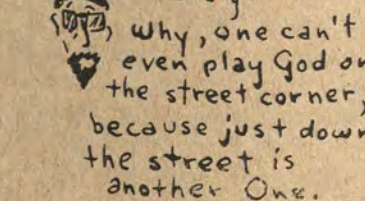 why, one can't
even play God on
the street corner,
because just down
the street is
another One.